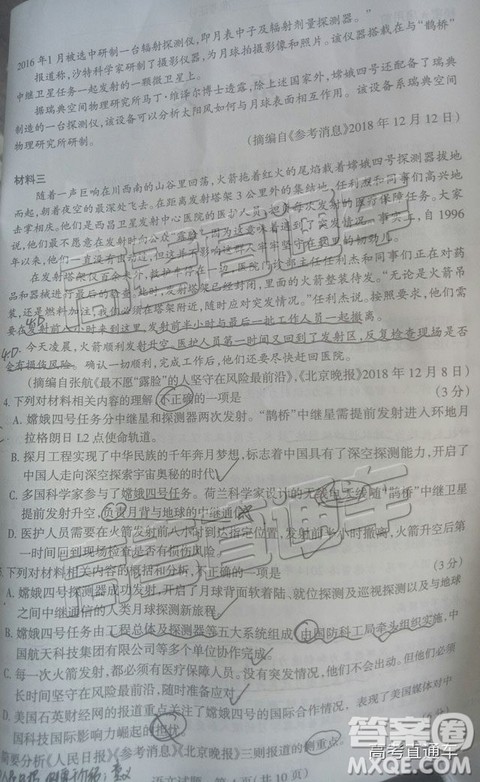 2016年1月被选中研制一台辐射探测仪,即月表中子及辐射剂量探测器。”
报道称,沙特科学家研制了摄影仪器,为月球拍摄影像和照片。该仪器搭载在与“鹊桥”
中继卫星任务一起发射的一颗微卫星上。
据瑞典空间物理研究所马丁·维泽尔博士透露,除上述国家外,嫦娥四号还配备了瑞典
制造的一台探测仪,该设备可以分析太阳风如何与月球表面相互作用。该设备系瑞典空间
物理研究所研制。
(摘编自《参考消息》2018年12月12日)
材料三
随着一声巨响在川西南的山谷里回荡,火箭拖着红火的尾焰载着嫦娥四号探测器拔地
而起,朝着夜空的最深处飞去。在距离发射塔架3公里外的集结地,任利杰和同事们
去掌相庆。他们是西昌卫星发射中心医院的医护人员,
说,他们最不愿意在发射时向公众“露脸”,因为这意味着遇到了突发情况。事实上,自1996
年以来,他们一直没有
在发射塔架仅百余米外,救护车停在一边,医院门诊部主任任利杰和同事们正在对药
品和器械进行最后的检查。此时,发射塔架已经封闭,里面的火箭整装待发。“无论是火箭吊
装,还是燃料加注,我们必须在塔架附近,随时应对突发情况。”任利杰说。按照要求,他们需
要在发射前八小时来到这里,发射前半小时与最后一批工作人员一起撤离。
4.D
今天凌晨,火箭顺利发射升空,医护人员第一时间又回到了发射区,反复检查现场是否
4.D
会有损伤风险。确认一切顺利,完成工作后,他们还要尽快赶回医院。
(摘编自张航《最不愿“露脸”的人坚守在风险最前沿》,《北京晚报》2018年12月8日)
4.下列对材料相关内容的理解,不正确的一项是(3分)
A.嫦娥四号任务分中继星和探测器两次发射。“鹊桥”中继星需提前发射进入环地月
拉格朗日L2点使命轨道。
B.探月工程实现了中华民族的千年奔月梦想,标志着中国具有了深空探测能力,开启了
中国人走向深空探索宇宙奥秘的时代
C.多国科学家参与了嫦娥四号任务。荷兰科学家设计的无线电天线随“鹊桥”中继卫星
提前发射升空,负责月背与地球的中继通信
D.医护人员需要在火箭发射前八小时到达指定位置,发射前半小时撤离,火箭升空后第
一时间回到现场检查是否有损伤风险。
下列对材料相关内容的概括和分析,不正确的一项是(3分)
A.嫦娥四号探测器成功发射,开启了月球背面软着陆、就位探测及巡视探测以及与地球
之间中继通信的人类月球探测新旅程。
B.嫦娥四号任务由工程总体及探测器等五大系统组成,由国防科工局牵头组织实施,中
国航天科技集团有限公司等多个单位协同完成。
C.每一次火箭发射,都必须有医疗保障人员。没有突发情况,他们不会出动。但他们必须
长时间坚守在风险最前沿,随时准备应对
D.美国石英财经网的报道重点关注了嫦娥四号的国际合作情况,表现了美国媒体对中
国科技国际影响力崛起的担忧
简要分析《人民日报》《参考消息》《北京晚报》三则报道的侧重点。(3分)
语文试题 第4页(共10页)
高考直通车
答案圈
MXQE.COM